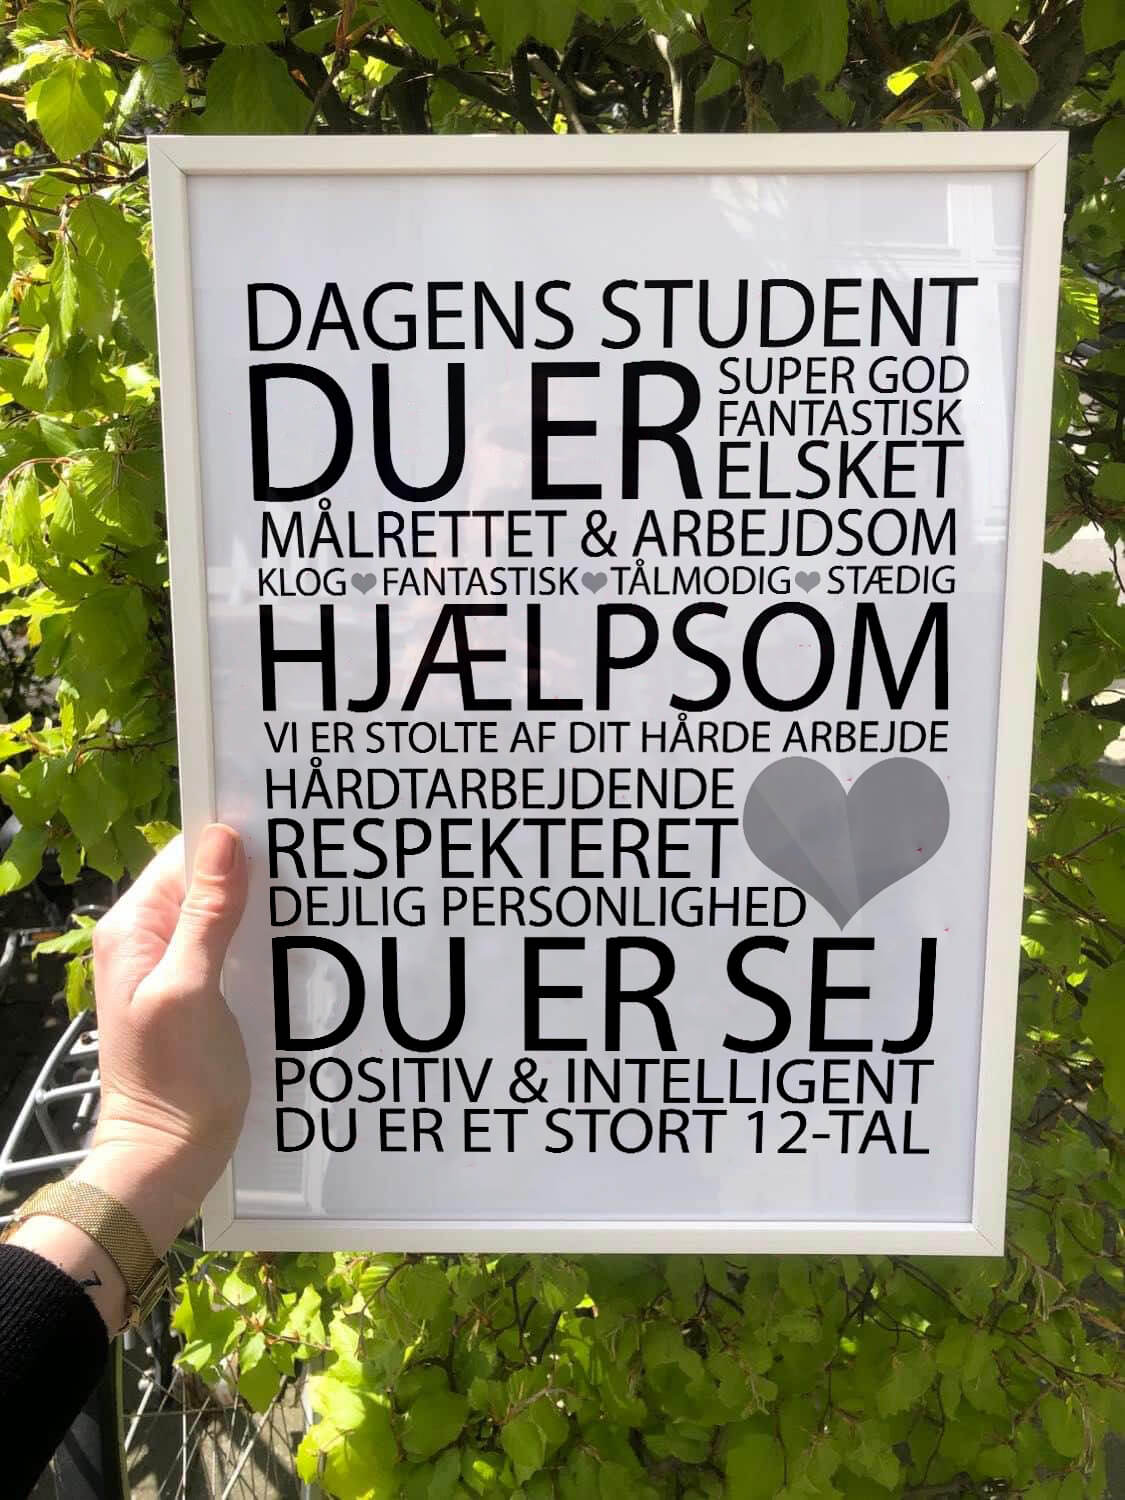 DAGENS STUDENT
DU ER
SUPER GOD
FANTASTISK
ELSKET
MÅLRETTET & ARBEJDSOM
KLOG FANTASTISK TÅLMODIG STÆDIG
HJÆLPSOM
VI ER STOLTE AF DIT HÅRDE ARBEJDE
HÅRDTARBEJDENDE
RESPEKTERET
DEJLIG PERSONLIGHED
DU ER SEJ
POSITIV & INTELLIGENT
DU ER ET STORT 12-TAL